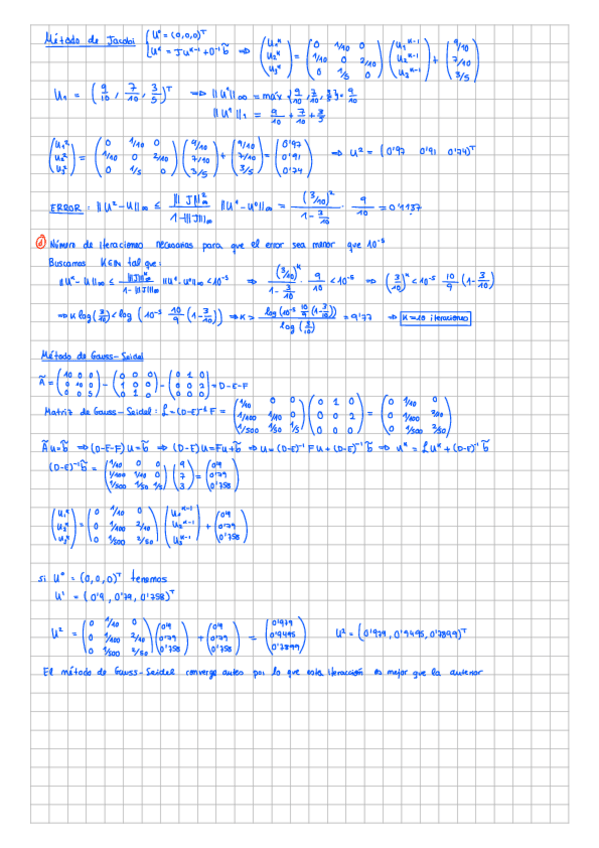 Método de Jacobi { u⁰ = (0,0,0)ᵀ
uᵏ = J uᵏ⁻¹ + D⁻¹ b̃ ⇒ (u₁ᵏ u₂ᵏ u₃ᵏ) = (0 1/10 0 ; 1/10 0 2/10 ; 0 1/5 0) (u₁ᵏ⁻¹ u₂ᵏ⁻¹ u₃ᵏ⁻¹) + (9/10 7/10 3/5)
U₁ = (9/10, 7/10, 3/5)ᵀ ⇒ ||U¹||∞ = máx {9/10, 7/10, 3/5} = 9/10
||U¹||₁ = 9/10 + 7/10 + 3/5
(u₁² u₂² u₃²) = (0 1/10 0 ; 1/10 0 2/10 ; 0 1/5 0) (9/10 7/10 3/5) + (9/10 7/10 3/5) = (0'97 0'91 0'74) ⇒ U² = (0'97 0'91 0'74)ᵀ
ERROR: ||U² - U||∞ ≤ |||J|||²∞ / 1 - |||J|||∞ ||U¹ - U⁰||∞ = (3/10)² / 1 - 3/10 · 9/10 = 0'1137
d) Número de iteraciones necesarias para que el error sea menor que 10⁻⁵
Buscamos K∈ℕ tal que:
||Uᵏ - U||∞ ≤ |||J|||ᵏ∞ / 1 - |||J|||∞ ||U¹ - U⁰||∞ < 10⁻⁵ ⇒ (3/10)ᵏ / 1 - 3/10 · 9/10 < 10⁻⁵ ⇒ (3/10)ᵏ < 10⁻⁵ 10/9 (1 - 3/10)
⇒ K log(3/10) < log(10⁻⁵ 10/9 (1 - 3/10)) ⇒ K > log(10⁻⁵ 10/9 (1 - 3/10)) / log(3/10) = 9'77 ⇒ K = 10 iteraciones
Método de Gauss-Seidel
Ã = (10 0 0 ; 0 10 0 ; 0 0 5) - (0 0 0 ; 1 0 0 ; 0 1 0) - (0 1 0 ; 0 0 2 ; 0 0 0) = D-E-F
Matriz de Gauss-Seidel: ℒ = (D-E)⁻¹ F = (1/10 0 0 ; 1/100 1/10 0 ; 1/500 1/50 1/5) (0 1 0 ; 0 0 2 ; 0 0 0) = (0 1/10 0 ; 0 1/100 2/10 ; 0 1/500 2/50)
Ãu = b̃ ⇒ (D-E-F)u = b̃ ⇒ (D-E)u = Fu + b̃ ⇒ u = (D-E)⁻¹ F u + (D-E)⁻¹ b̃ ⇒ uᵏ = ℒuᵏ⁻¹ + (D-E)⁻¹ b̃
(D-E)⁻¹ b̃ = (1/10 0 0 ; 1/100 1/10 0 ; 1/500 1/50 1/5) (9 7 3) = (0'9 0'79 0'758)
(u₁ᵏ u₂ᵏ u₃ᵏ) = (0 1/10 0 ; 0 1/100 2/10 ; 0 1/500 2/50) (u₁ᵏ⁻¹ u₂ᵏ⁻¹ u₃ᵏ⁻¹) + (0'9 0'79 0'758)
si U⁰ = (0,0,0)ᵀ tenemos
U¹ = (0'9, 0'79, 0'758)ᵀ
U² = (0 1/10 0 ; 0 1/100 2/10 ; 0 1/500 2/50) (0'9 0'79 0'758) + (0'9 0'79 0'758) = (0'979 0'9495 0'7899) U² = (0'979, 0'9495, 0'7899)ᵀ
El método de Gauss-Seidel converge antes por lo que esta iteracción es mejor que la anterior